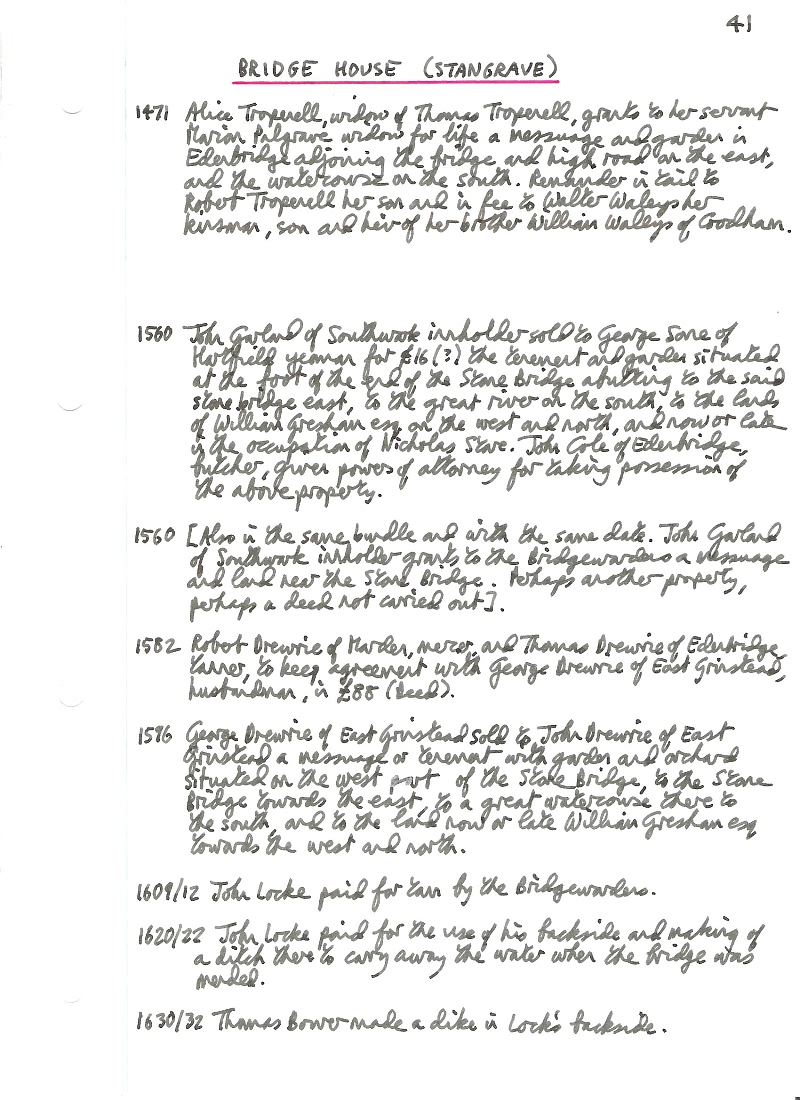 41
BRIDGE HOUSE (STANGRAVE)
1471 Alice Troperell, widow of Thomas Troperell, grants to her servant
Marion Palgrave widow for life a messuage and garden in
Edenbridge adjoining the bridge and high road on the east,
and the watercourse on the south. Remainder in tail to
Robert Troperell her son and in fee to Walter Waleys her
kinsman, son and heir of her brother William Walleys of Coodham.
1560 John Garland of Southwark innholder sold to George Sone of
Hartfield yeoman for £16 (?) the tenement and garden situated
at the foot of the end of the Stone Bridge abutting to the said
stone bridge east, to the great river on the south, to the lands
of William Gresham esq on the west and north, and now or late
in the occupation of Nicholas Stave. John Cole of Edenbridge,
butcher, given powers of attorney for taking possession of
the above property.
1560 [Also in the same bundle and with the same date. John Garland
of Southwark innholder grants to the Bridgewardens a messuage
and land near the Stone Bridge. Perhaps another property,
perhaps a deed not carried out].
1582 Robert Drewrie of Marden, mercer, and Thomas Drewrie of Edenbridge
tanner, to keep agreement with George Drewrie of East Grinstead,
husbandman, in £88 (Deed).
1596 George Drewrie of East Grinstead sold to John Drewrie of East
Grinstead a messuage or tenement with garden and orchard
situated on the west part of the Stone Bridge, to the Stone
Bridge towards the east, to a great watercourse there to
the south, and to the land now or late William Gresham esq
towards the west and north.
1609/12 John Locke paid for tan by the Bridgewardens.
1620/22 John Locke paid for the use of his backside and making of
a ditch there to carry away the water when the bridge was
mended.
1630/32 Thomas Bower made a dike in Lock's backside.